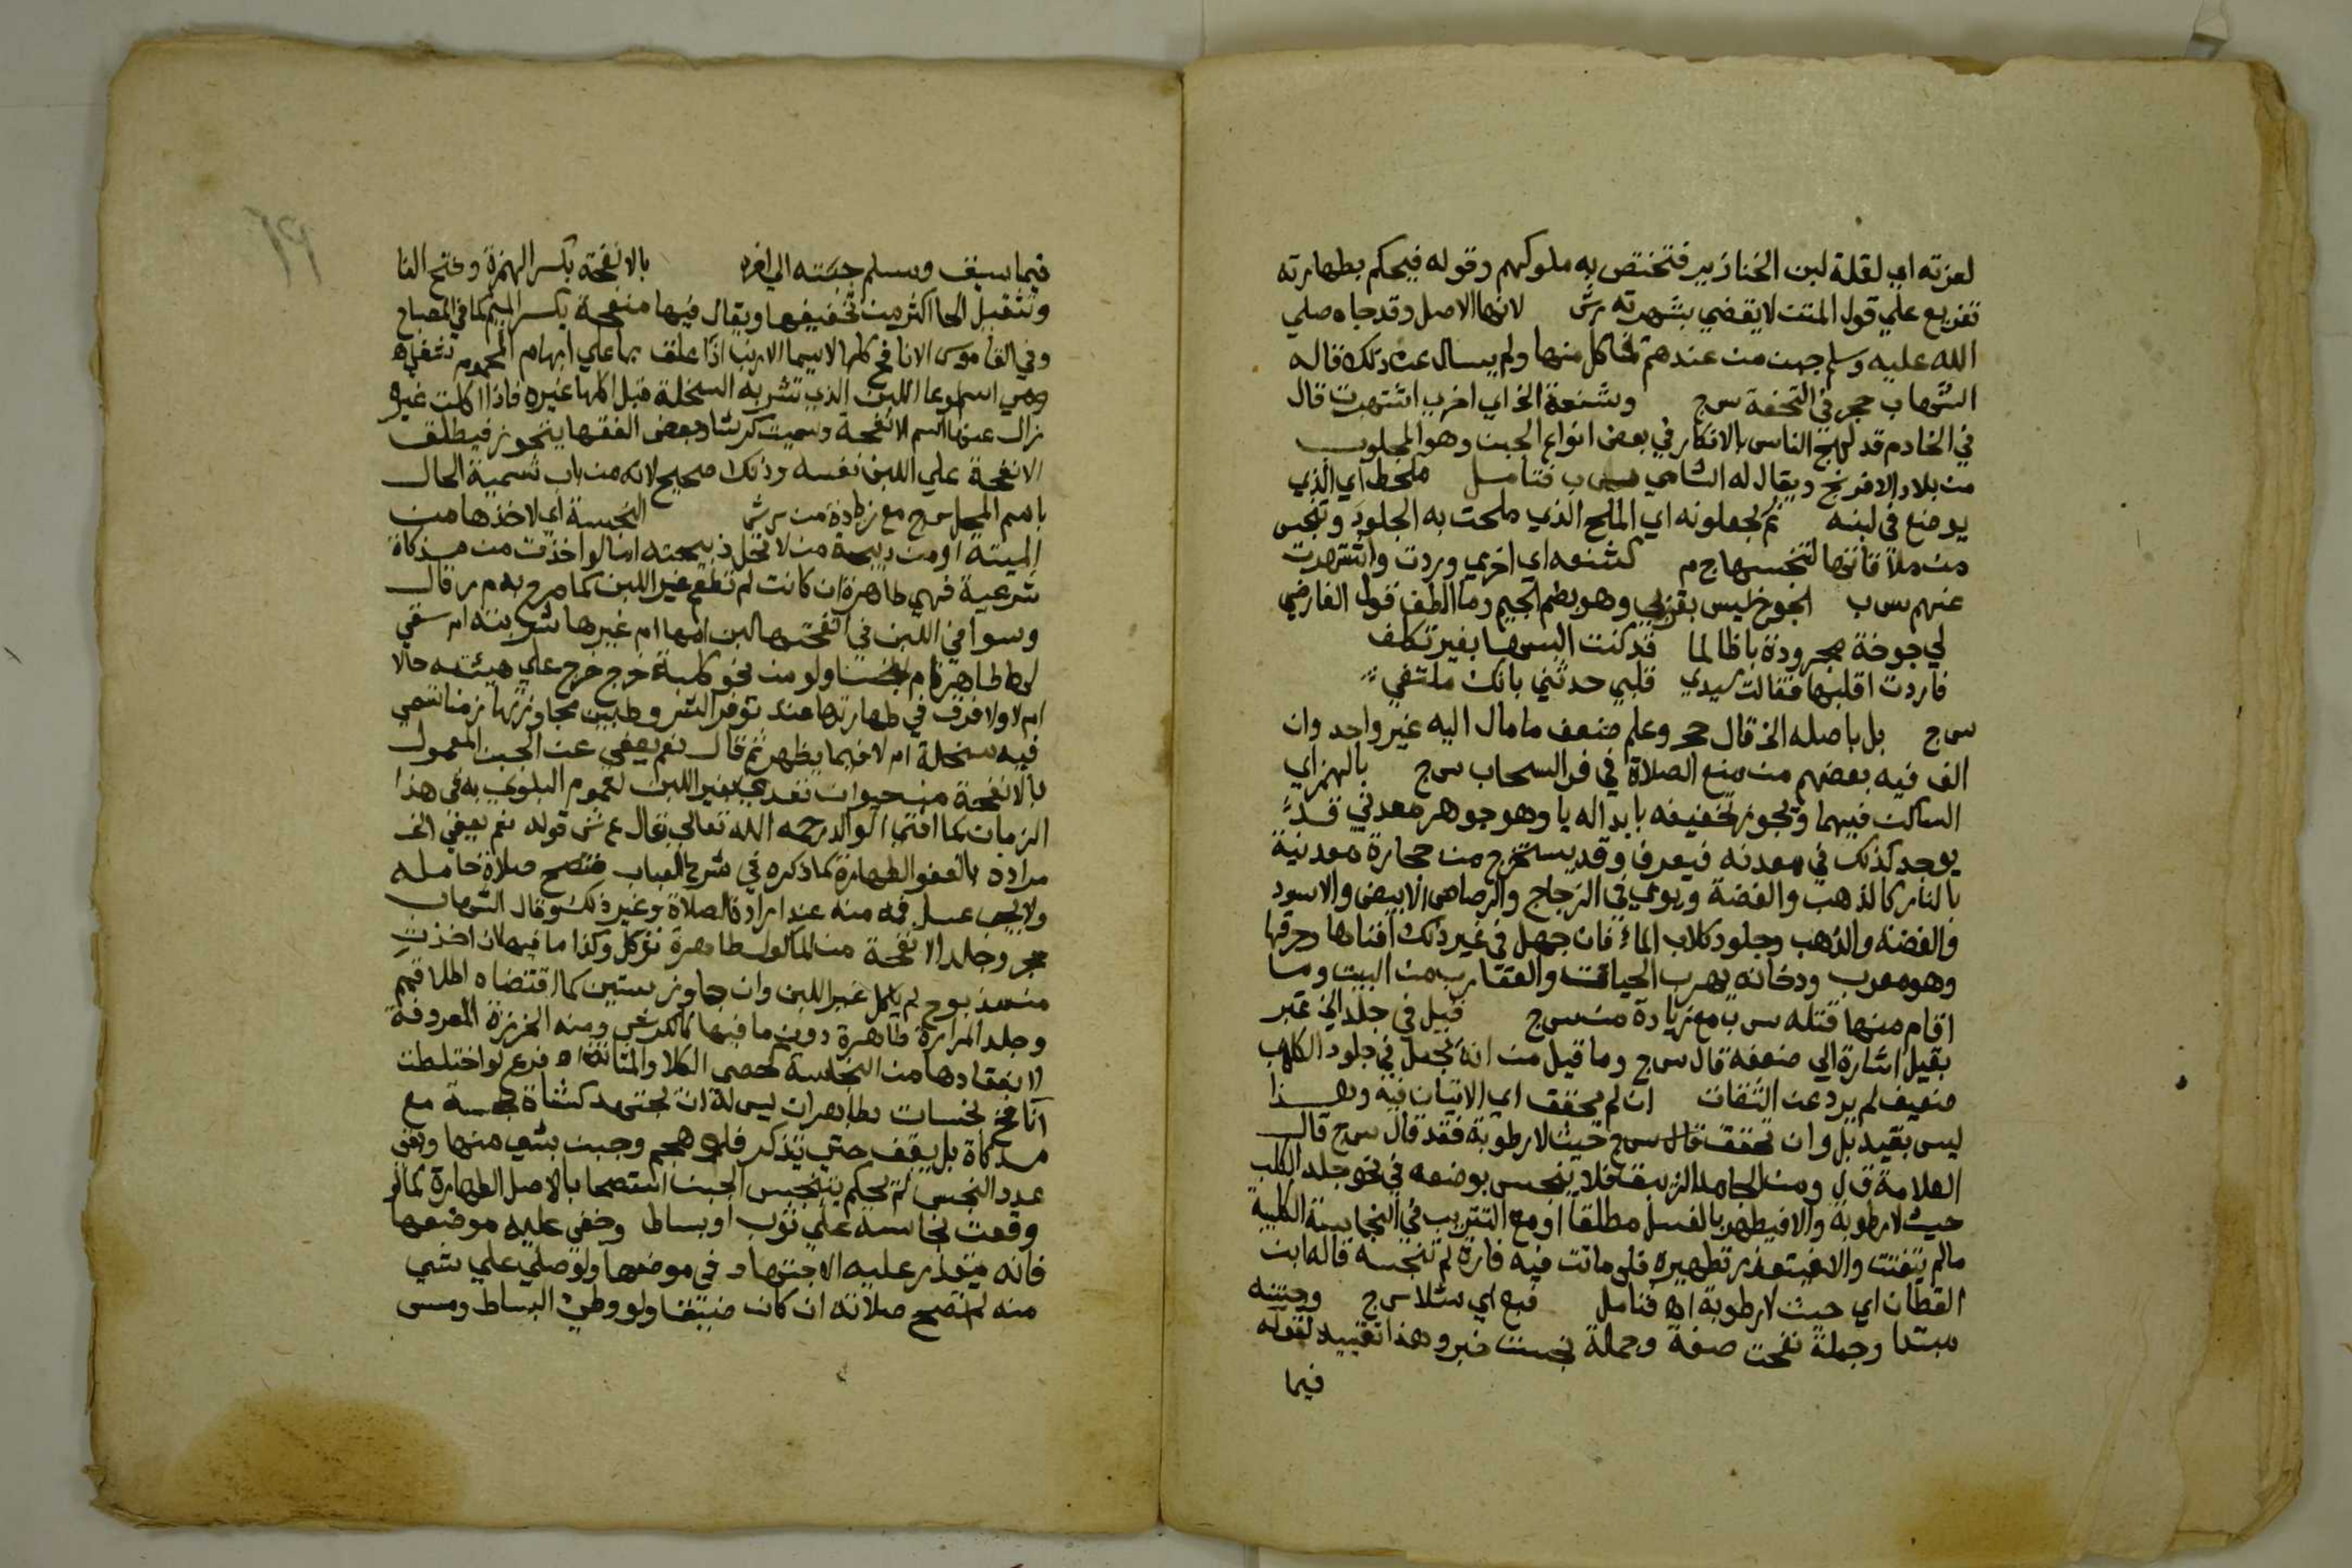 لعزته اي لقلة لبن الخنازير فتختص به ملوكهم وقوله فيحكم بطهارته
تفريع علي قول المتن لا يقضي بشهرته رش لانها الاصل وقد جاه صلي
الله عليه وسلم جبن من عندهم فاكل منها ولم يسال عن ذلك قاله
الشهاب حجر في التحفة س ج وشنعة الخ اي اخري اشتهرت قال
في الخادم قد لهج الناس بالانكار في بعض انواع الجبن وهو المجلوب
من بلاد الافرنج ويقال له الشامي س ب فتامل ملخط اي الذي
يوضع في لبنه ثم يجعلونه اي الملح الذي ملحت به الجلود وتنجس
من ملاقاتها لتنجسها ج م كشنعه اي اخري وردت واشتهرت
عنهم س ب الجوخ ليس بقربي وهو بضم الجيم وما الطف قول الفارضي
لي جوخة مجرودة با ظالما قد كنت البسها بغير تكلف
فاردت اقلبها فقالت سيدي قلبي حدثني بانك متلفي
س ج بل باصله الخ قال حجر وعلم ضعف ما مال اليه غير واحد وان
الف فيه بعضهم من منع الصلاة في فر السحاب س ج بالهمز اي
الساكن فيهما ويجوز تخفيفه بابداله يا وهو جوهر معدني قد
يوجد كذلك في معدنه فيعرف وقد يستخرج من حجارة معدنية
بالنار كالذهب والفضة ويوعي في الزجاج والرصاص الابيض والاسود
والفضة والذهب وجلود كلاب الماء فان جهل في غير ذلك افناها وخرقها
وهو معرب ودخانه يهرب الحيات والعقارب من البيت وما
اقام منها قتله س ب مع زيادة من س ج قيل في جلد الخ عبر
بقيل اشارة الي ضعفه قال س ج وما قيل من انه يجعل في جلود الكلاب
ضعيف لم يرد عن الثقات ان لم يحقق اي الاتيان فيه وهذا
ليس بقيد بل وان تحقق قال س ج حيث لا رطوبة فقد قال س ج قال
العلامة ق ل ومن الجامد الزيبق فلا ينجس بوضعه في نحو جلد الكلب
حيث لا رطوبة والا فيطهر بالغسل مطلقا او مع التتريب في النجاسة الكلبية
ما لم يتفتت والا فيتعذر تطهيره فلو ماتت فيه فارة لم تنجسه قاله ابن
القطان اي حيث لا رطوبة اه فتامل فبع اي مثلا س ج وجبنه
مبتدا وجملة نفحت صفة وجملة نجست خبر وهذا تقييد لقوله
فيما
فيما سبق وسلم جبنته الي اخره بالانفحة بكسر الهمزة وفتح الفا
وتثقيل الحا اكثر من تخفيفها ويقال فيها منفحة بكسر الميم كما في المصباح
وفي القاموس الانافح كلها لا سيما الارنب اذا علق بها علي ابهام المحموم شفي اه
وهي اسم لوعا اللبن الذي تشربه السخلة قبل اكلها غيره فاذا اكلت غيره
زال عنها اسم الانفحة وسميت كرشا وبعض الفقها يتجوز فيطلق
الانفحة علي اللبن نفسه وذلك صحيح لانه من باب تسمية الحال
باسم المحل س ج مع زيادة من رش النجسة اي لاخذها من
الميتة او من ذبيحة من لا تحل ذبيحته اما لو اخذت من مذكاة
شرعية فهي طاهرة ان كانت لم تطعم غير اللبن كما صرح به م ر قال
وسوا في اللبن في انفحتها لبن امها ام غيرها شربته ام سقي
لها طاهرا ام نجسا ولو من نحو كلبة خرج علي هيئته حالا
ام لا ولا فرق في طهارتها عند توفر الشروط بين مجاوزتها زمنا تسمي
فيه سخلة ام لا فيما يظهر ثم قال نعم يعفي عن الجبن المعمول
بالانفحة من حيوان تغذي بغير اللبن لعموم البلوي به في هذا
الزمان كما افتي الوالد رحمه الله تعالي قال ع ش قوله نعم يعفي الخ
مراده بالعفو الطهارة كما ذكره في شرح العباب فتصح صلاة حامله
ولا يجب غسل فمه منه عند ارادة الصلاة وغير ذلك وقال الشهاب
حجر وجلد الانفحة من الماكول طاهرة تؤكل وكذا ما فيها ان اخذت
من مذبوح لم ياكل غير اللبن وان جاوز سنتين كما اقتضاه اطلاقهم
وجلد المرارة طاهرة دون ما فيها كالكرش ومنه الخرزة المعروفة
لانعقادها من النجاسة كحصي الكلا والمثانة اه فرع لو اختلطت
انافح نجسات بطاهرات ليس له ان يجتهد كشاة نجسة مع
مذكاة بل يقف حتي يتذكر فلو هجم وجبن بشي منها وبقي
عدد النجس لم يحكم بتنجيس الجبن استصحابا لاصل الطهارة كما لو
وقعت نجاسة علي ثوب او بساط وخفي عليه موضعها
فانه يتعذر عليه الاجتهاد في موضعها ولو صلي علي شي
منه لم تصح صلاته ان كان ضيقا ولو وطي البساط ومس